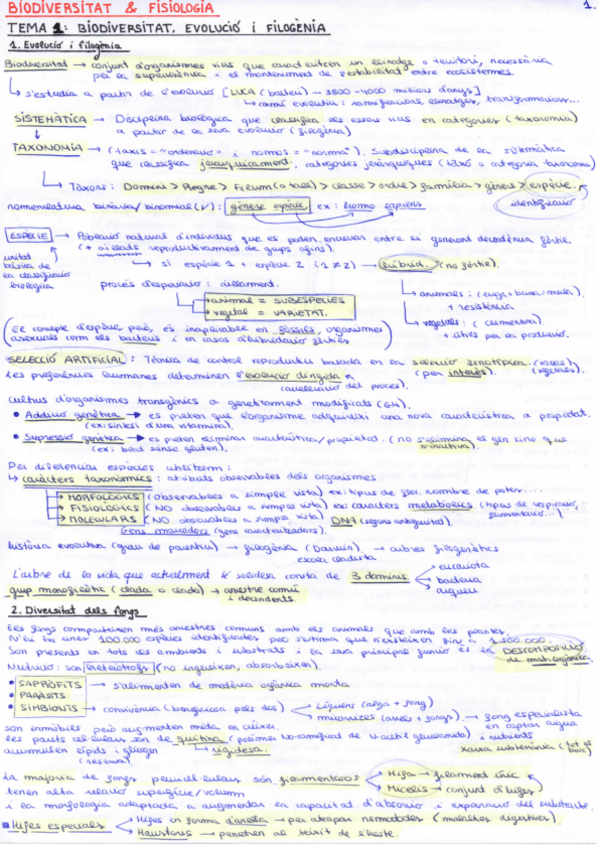 BIODIVERSITAT & FISIOLOGIA
1.
TEMA 1: BIODIVERSITAT, EVOLUCIÓ i FILOGÈNIA
1. Evolució i filogènia
Biodiversitat → conjunt d'organismes vius que coexisteixen un ecosistema o territori, necessària
per la supervivència i el manteniment de l'estabilitat entre ecosistemes.
↳ s'estudia a partir de l'evolució [LUCA (bacteri) → 3500-4000 milions d'anys]
↳ canvi evolutiu: ramificacions, llinatges, transformacions...
SISTEMÀTICA → Disciplina biològica que classifica els éssers vius en categories (taxonomia)
a partir de la seva evolució (filogènia)
TAXONOMIA → (taxis = "ordenació" i nomos = "norma"). Subdisciplina de la sistemàtica
que classifica jeràrquicament, categories jeràrquiques (tàxó o categoria taxonòmica)
↳ Tàxons: Domini > Regne > Fílum (o tall) > classe > ordre > família > gènere > espècie.
identificació
nomenclatura binària/binomial (v): gènere espècie, ex: homo sapiens
ESPÈCIE → Població natural d'individus que es poden encreuar entre si generant descendència fèrtil.
(+ aïllats reproductivament de grups afins).
unitat bàsica de la classificació biològica
↳ si espècie 1 + espècie 2 (1≠2) → híbrid. (no fèrtil).
Procés d'especiació: aïllament.
→ animal = SUBESPÈCIES
→ vegetal = VARIETAT.
↳ animals: (euga + burro = mula).
+ resistència
↳ vegetals: (clementina).
+ útils per la producció.
(El concepte d'espècie però, és inaplicable en fòssils, organismes
asexuals com els bacteris i en casos d'hibridació fèrtils)
SELECCIÓ ARTIFICIAL: Tècnica de control reproductiu basada en la selecció fenotípica.
Les preferències humanes determinen l'evolució dirigida (per interès).
(acceleració del procés).
Cultius d'organismes transgènics o genèticament modificats (GM).
• Addició genètica → es pretén que l'organisme adquireixi una nova característica o propietat.
(ex: síntesi d'una vitamina).
• Supressió genètica → es pretén eliminar característica/propietat. (no s'elimina el gen sino que s'inactiva).
(ex: blat sense gluten).
Per diferenciar espècies utilitzem:
↳ caràcters taxonòmics: atributs observables dels organismes
→ MORFOLÒGICS (observables a simple vista) ex: tipus de flor, nombre de potes...
→ FISIOLÒGICS (NO observables a simple vista) ex: caràcters metabòlics (tipus de respiració, fermentació...)
→ MOLECULARS (NO observables a simple vista) DNA (segons antiguitat).
Gens marcadors (gens caracteritzadors).
història evolutiva (grau de parentiu) → filogènia (Darwin) → arbres filogenètics
escola cladista
L'arbre de la vida que actualment té validesa consta de 3 dominis
→ eucariota
→ bacteria
→ arquea
grup monofilètic (clada o clado) → ancestre comú
i descendents.
2. Diversitat dels fongs
Els fongs comparteixen més ancestres comuns amb els animals que amb les plantes.
N'hi ha unes 100.000 espècies identificades però s'estima que n'existeixen fins a 1.500.000.
Són presents en tots els ambients i substrats i la seva principal funció és la DESCOMPOSICIÓ
de mat. orgànica.
Nutrició: són heteròtrofs (no ingereixen, absorbeixen).
• SAPRÒFITS → s'alimenten de matèria orgànica morta
• PARÀSITS
• SIMBIONTS → convivència (beneficiosa pels dos)
→ líquens (alga + fong)
→ micorizes (arrels + fongs) → fong especialista
en captar aigua
i nutrients
són immòbils però augmenten mida en créixer.
les parets cel·lulars són de quitina (polímer no ramificat de N-acetil glucosamida)
↳ rigidesa.
acumulen lípids i glicogen
(reserva)
xarxa subterrània (tot el bosc)
La majoria de fongs pluricel·lulars són filamentosos
→ Hifa → filament únic
→ Miceli → conjunt d'hifes
tenen alta relació superfície/volum
i la morfologia adaptada a augmentar la capacitat d'absorció i expansió del substrat.
■ Hifes especials
→ Hifes en forma d'anella → per atrapar nematodes (malalties digestives).
→ Haustoris → penetren al teixit de l'hoste.